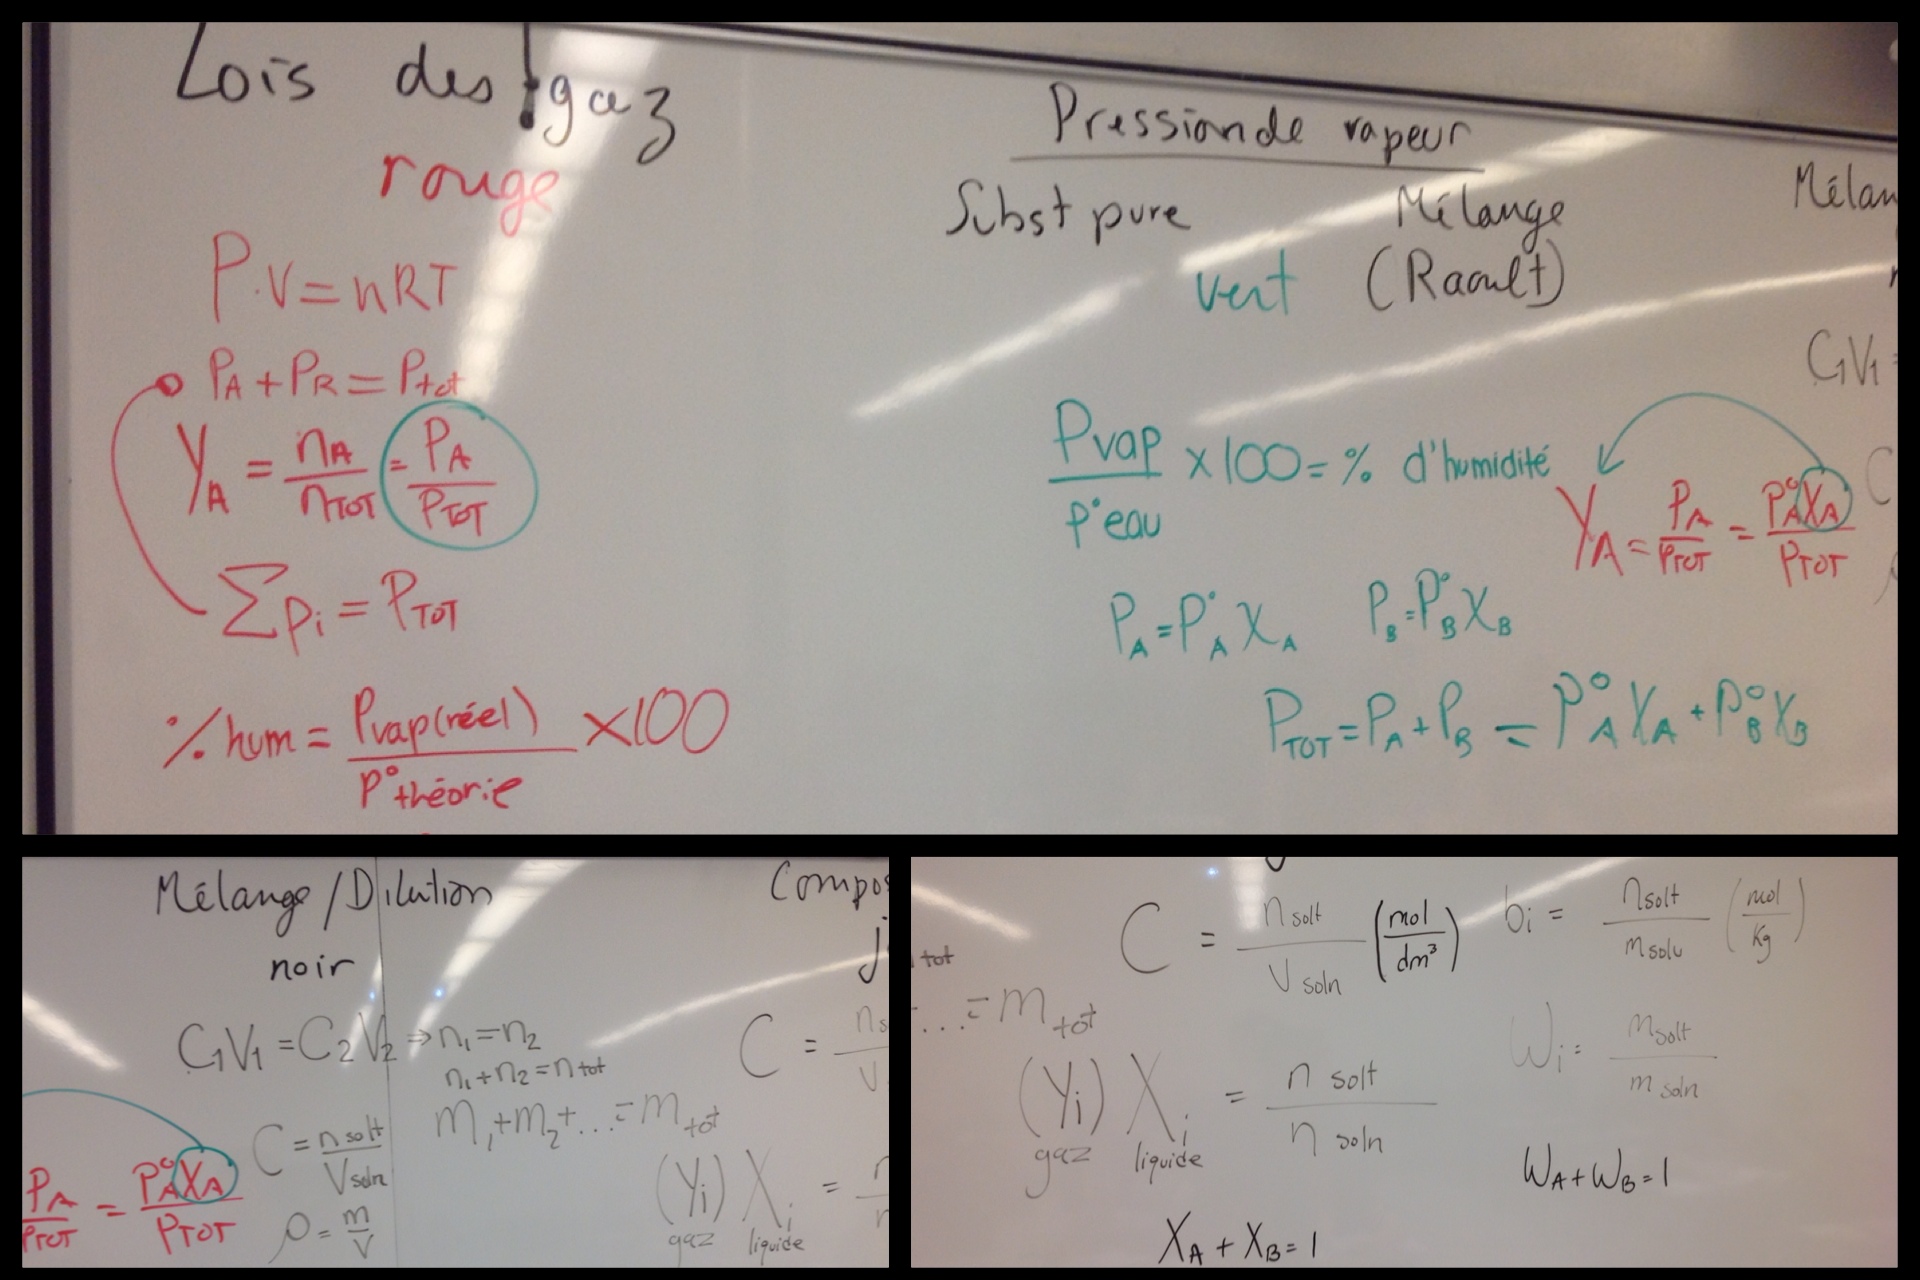 Lois des gaz
rouge
P·V = nRT
PA + PR = Ptot
YA = nA/nTOT = PA/PTOT
∑Pi = PTOT
% hum = Pvap(réel)/P°théorie ×100
Pression de vapeur
Subst pure Mélange
vert (Raoult)
Pvap/P°eau ×100 = % d'humidité
YA = PA/PTOT = P°A XA/PTOT
PA = P°A XA PB = P°B XB
PTOT = PA + PB = P°A XA + P°B XB
Mélan
C1V1 =
C
Mélange / Dilution
noir
C1V1 = C2V2 ⇒ n1 = n2
n1 + n2 = n tot
m1 + m2 + ... = m tot
C = n solt/V soln
ρ = m/V
PA/PTOT = P°A XA/PTOT
Compos
j
C = ns/V
(Yi) Xi = n/n
gaz liquide
tot
... = m tot
C = n solt/V soln (mol/dm³)
bi = n solt/m solv (mol/kg)
(Yi) Xi = n solt/n soln
gaz liquide
Wi = m solt/m soln
WA + WB = 1
XA + XB = 1